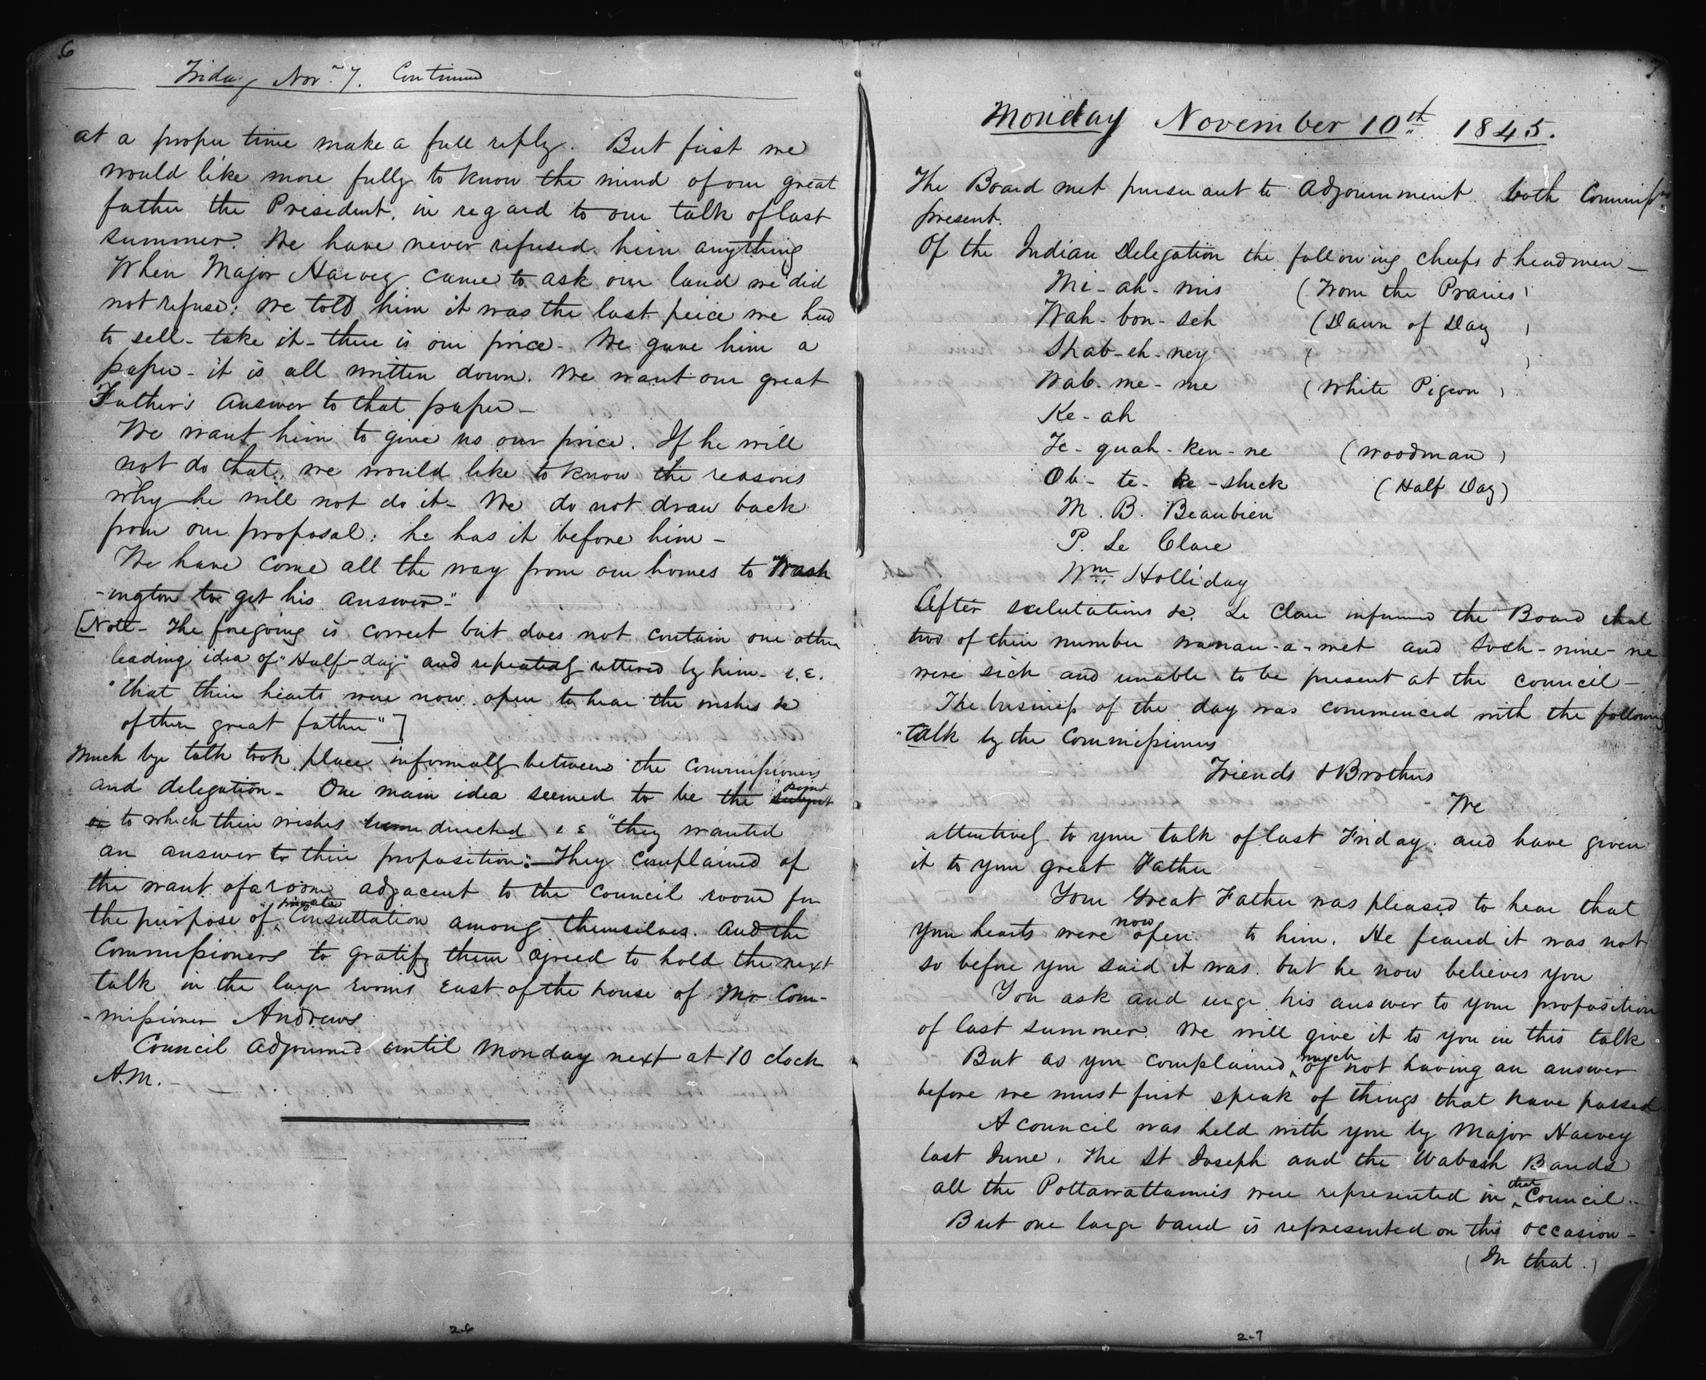 6
Friday Nov.r 7. Continued
at a proper time make a full reply. But first we
would like more fully to know the mind of our great
father the President, in regard to our talk of last
summer. We have never refused him anything
When Major Harvey came to ask our land we did
not refuse: we told him it was the last peice we had
to sell - take it - there is our price - We gave him a
paper - it is all written down. We want our great
Father's answer to that paper -
We want him to give us our price. If he will
not do that, we would like to know the reasons
why he will not do it - We do not draw back
from our proposal: he has it before him -
We have come all the way from our homes to Wash
-ington to get his answer -"
[Note - The foregoing is correct but does not contain one other
leading idea of "Half-day" and repeatedly uttered by him - i.e.
"that their hearts were now open to hear the wishes &c
of their great father"]
Much bye talk took place informally between the Commissioners
and delegation - One main idea seemed to be the subject point
to which their wishes directed i e "they wanted
an answer to their proposition: - They complained of
the want of a room adjacent to the council room for
the purpose of private Consultation among themselves. And the
Commissioners to gratify them agreed to hold the next
talk in the large rooms East of the house of Mr Com-
-missioner Andrews
Council adjourned until Monday next at 10 clock
A.M. -
2-6
7
Monday November 10th 1845.
The Board met pursuant to adjournment both Commissrs
present.
Of the Indian Delegation the following cheefs & headmen -
Mi-ah-mis (From the Praries)
Wah-bon-seh (Dawn of Day)
Shab-eh-ney ( )
Wab-me-me (White Pigeon)
Ke-ah
Te-quah-ken-ne (Woodman)
Ob-te-ke-shick (Half Day)
M. B. Beaubien
P. Le Clare
Wm. Holliday
After salutations &c. Le Clare informed the Board that
two of their number Wanau-a-met and Sosh-nine-ne
were sick and unable to be present at the council -
The business of the day was commenced with the following
"talk by the Commissioners
Friends & Brothers
We
attentively to your talk of last Friday. and have given
it to your great Father
Your Great Father was pleased to hear that
your hearts were now open to him. He feared it was not
so before you said it was. but he now believes you
You ask and urge his answer to your proposition
of last summer. We will give it to you in this talk
But as you complained much of not having an answer
before we must first speak of things that have passed
A council was held with you by Major Harvey
last June. The St Joseph and the Wabash Bands
all the Pottawattamies were represented in that Council -
But one large band is represented on this occasion -
(In that.)
2-7